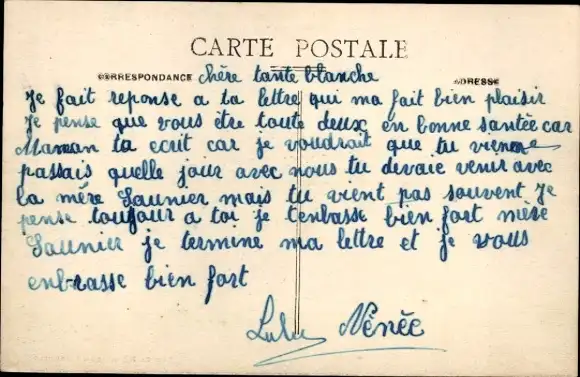 CARTE POSTALE
CORRESPONDANCE chère tante blanche ADRESSE
Je fait reponse a ta lettre qui ma fait bien plaisir
Je pense que vous être toute deux en bonne santée car
Maman ta ecrit car je voudrait que tu
passais quelle jour avec nous tu divaie venir avec
la mére Saunier mais tu vient pas souvent Je
pense toujour a toi je tenbasse bien fort mère
Saunier je termine ma lettre et je vous
enbrasse bien fort
Lulu Nènée